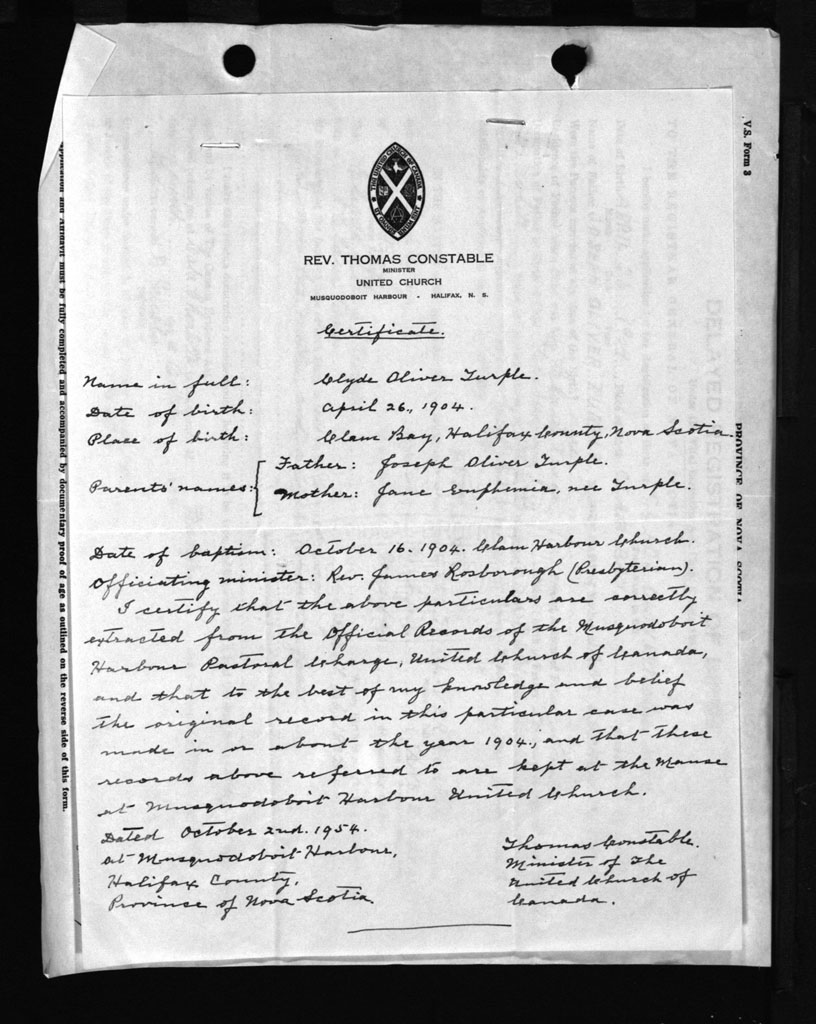 V.S. Form 3
PROVINCE OF NOVA SCOTIA
DELAYED REGISTRATION
THE UNITED CHURCH OF CANADA
REV. THOMAS CONSTABLE
MINISTER
UNITED CHURCH
MUSQUODOBOIT HARBOUR - HALIFAX, N. S.
Certificate.
Name in full: Clyde Oliver Turple.
Date of birth: April 26, 1904.
Place of birth: Clam Bay, Halifax County, Nova Scotia.
Parents' names: Father: Joseph Oliver Turple.
Mother: Jane Euphemia, nee Turple.
Date of baptism: October 16. 1904. Clam Harbour Church.
Officiating minister: Rev. James Rosborough (Presbyterian).
I certify that the above particulars are correctly
extracted from the Official Records of the Musquodoboit
Harbour Pastoral Charge, United Church of Canada,
and that to the best of my knowledge and belief
the original record in this particular case was
made in or about the year 1904, and that these
records above referred to are kept at the Manse
at Musquodoboit Harbour United Church.
Dated October 2nd. 1954.
at Musquodoboit Harbour,
Halifax County,
Province of Nova Scotia.
Thomas Constable.
Minister of The
United Church of
Canada.
Application and Affidavit must be fully completed and accompanied by documentary proof of age as outlined on the reverse side of this form.